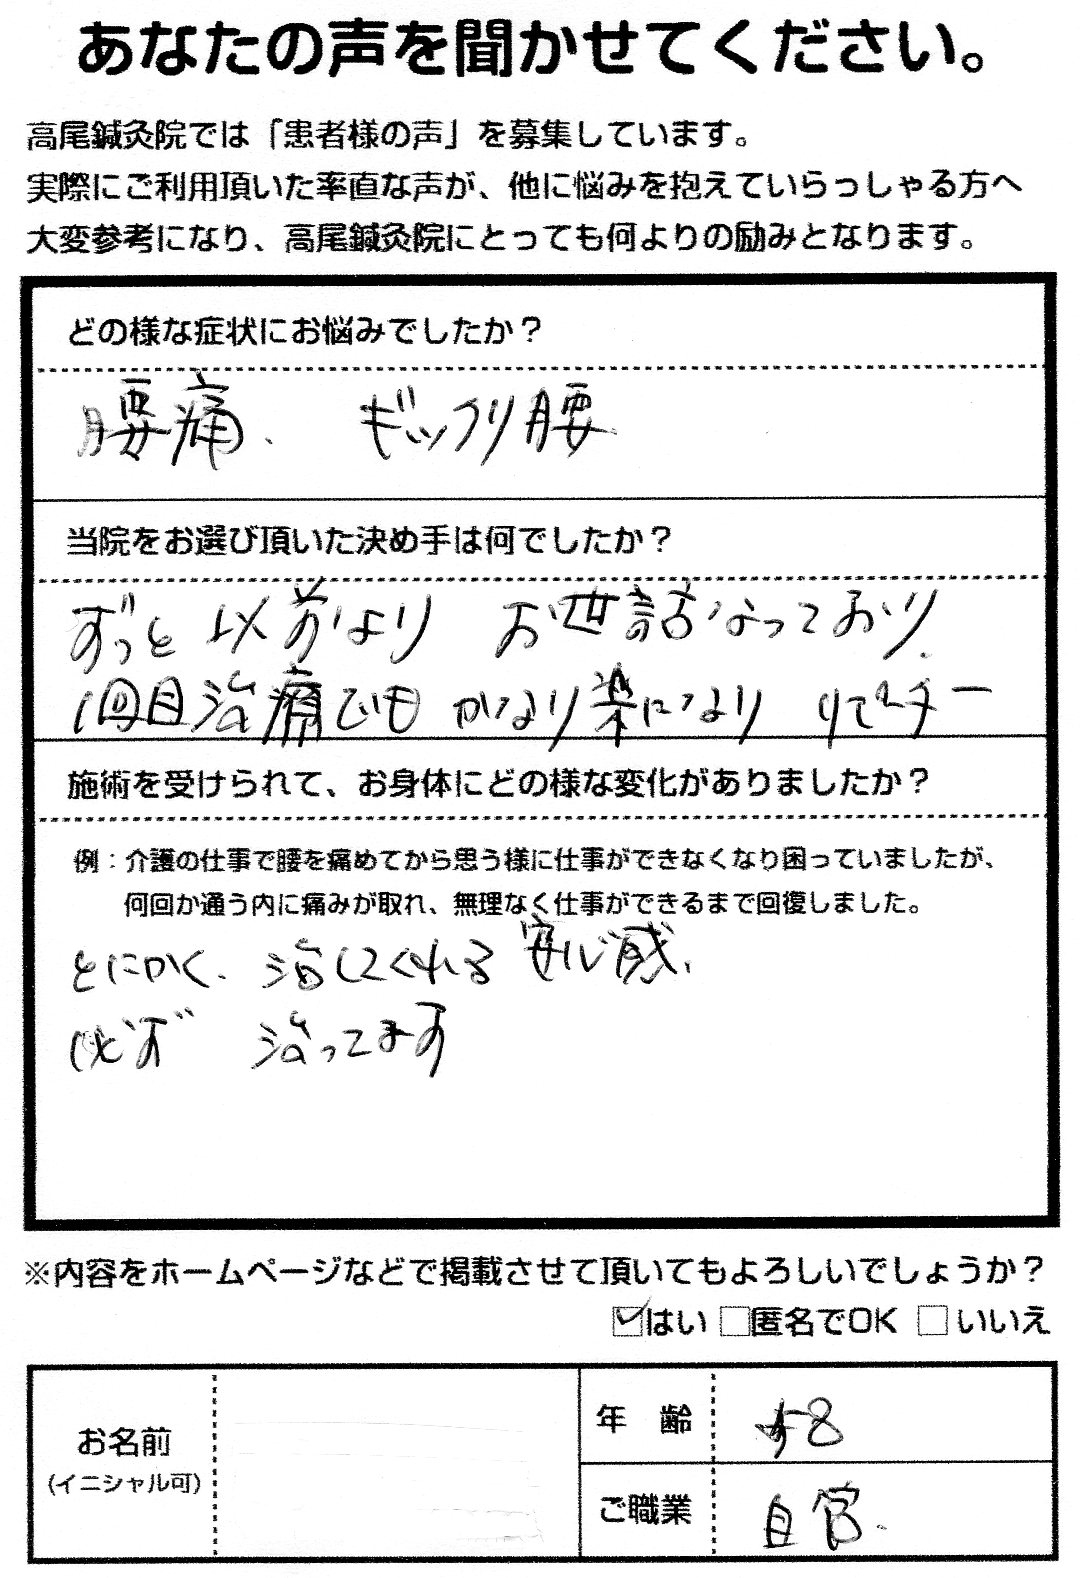 あなたの声を聞かせてください。
高尾鍼灸院では「患者様の声」を募集しています。
実際にご利用頂いた率直な声が、他に悩みを抱えていらっしゃる方へ
大変参考になり、高尾鍼灸院にとっても何よりの励みとなります。
どの様な症状にお悩みでしたか？
腰痛、 ギックリ腰
当院をお選び頂いた決め手は何でしたか？
ずっと以前より お世話なっており、
1回目治療でも かなり楽になり リピーター
施術を受けられて、お身体にどの様な変化がありましたか？
例：介護の仕事で腰を痛めてから思う様に仕事ができなくなり困っていましたが、
何回か通う内に痛みが取れ、無理なく仕事ができるまで回復しました。
とにかく、治してくれる安心感、
必ず 治ってます
※内容をホームページなどで掲載させて頂いてもよろしいでしょうか？
はい 匿名でOK いいえ
お名前
(イニシャル可)
年 齢
ご職業 自営